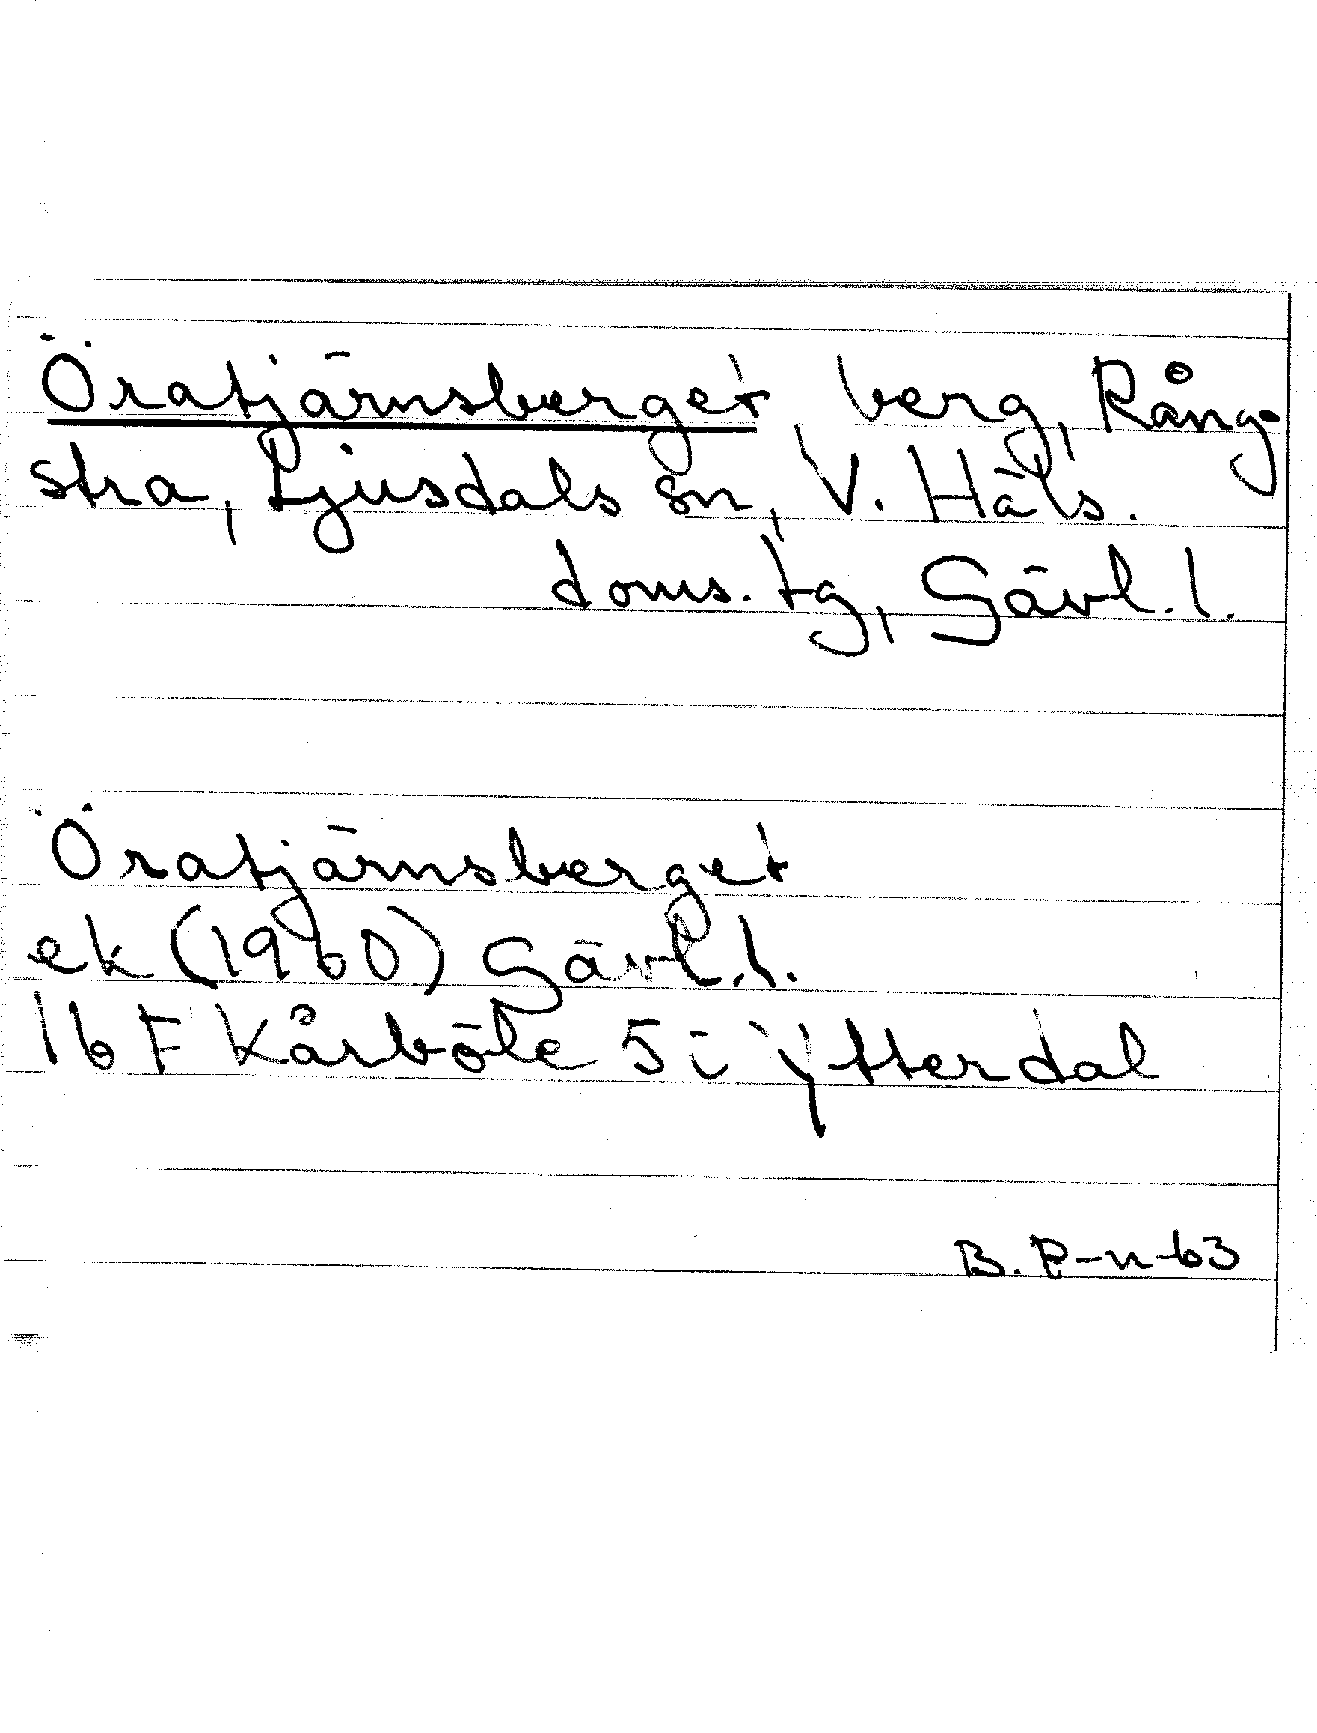 Öratjärnsberget berg, Rång-
stra, Ljusdals sn, V. Häls.
doms. tg, Gävl. l.
Öratjärnsberget
ek (1960) Gävl. l.
16 F Kårböle 5 i Ytterdal
B. P-n-63